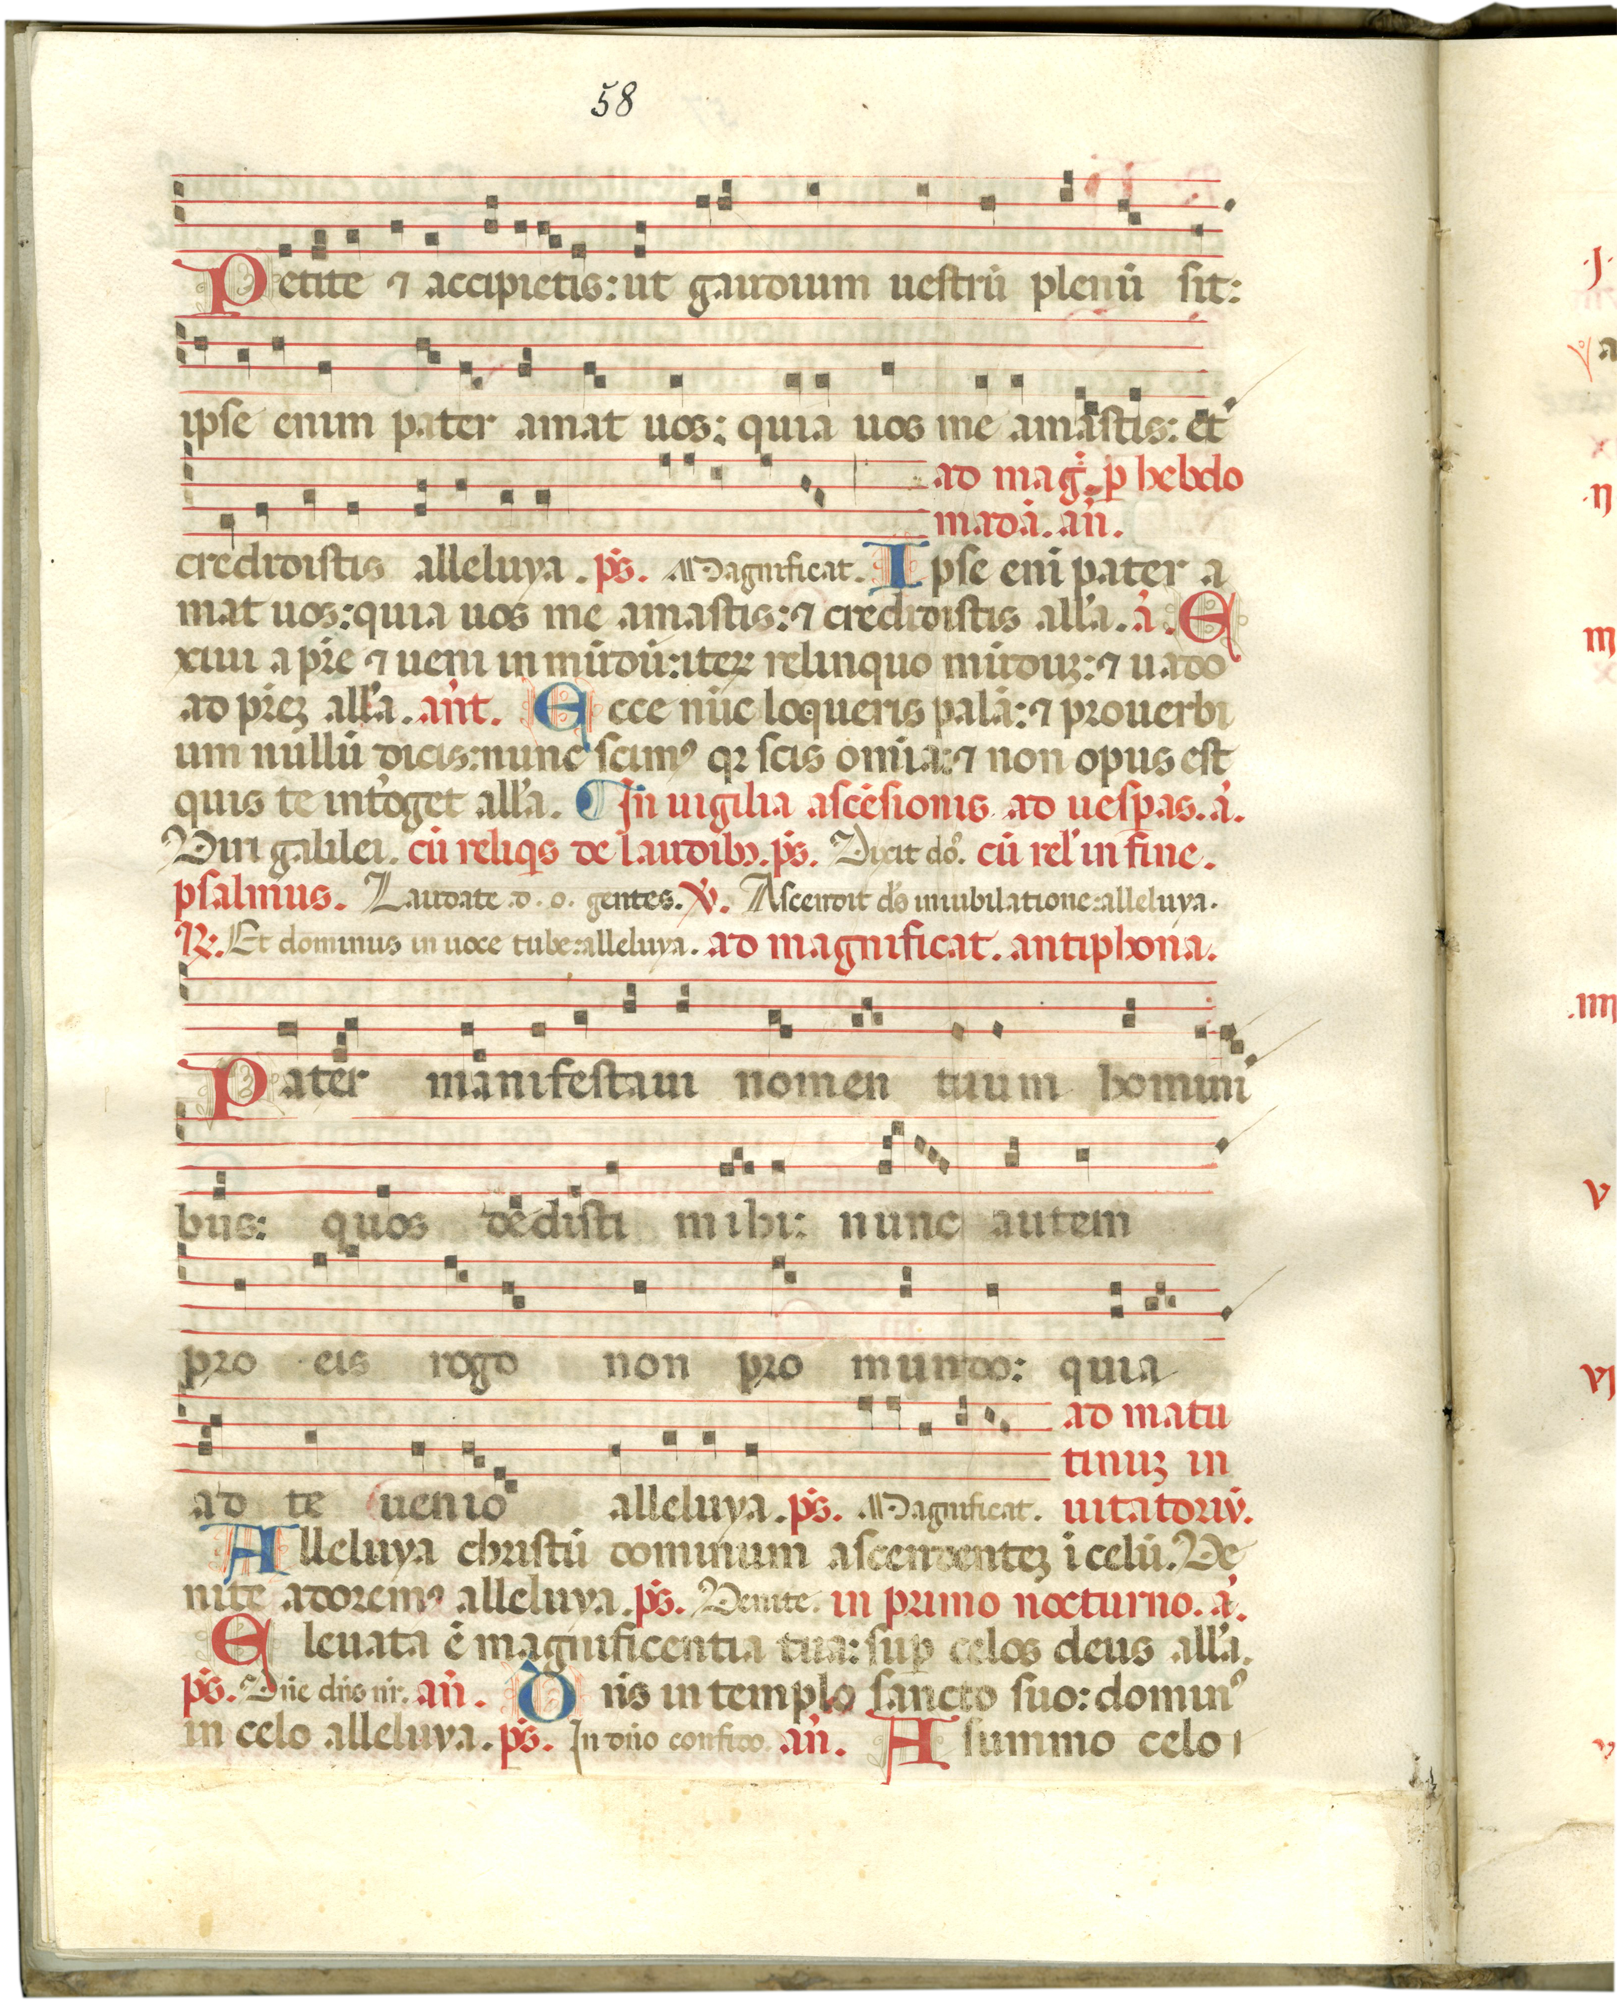 58
Petite ⁊ accipietis: ut gaudium uestrū plenū sit:
ipse enim pater amat uos: quia uos me amastis: et
ad mag̃. p̱ hebdo
madā. añ.
credidistis alleluya. p̃s. Magnificat. Ipse eni pater a
mat uos: quia uos me amastis: ⁊ credidistis all'a. ã. E
xiui a pr̃e ⁊ ueni in mūdū: iteꝝ relinquo mūduꝫ: ⁊ uado
ad pr̃eꝫ all'a. añt. Ecce nūc loqueris palā: ⁊ prouerbi
um nullū dicis: nunc scimꝰ qꝛ scis omīa: ⁊ non opus est
quis te int'oget all'a. ¶ In uigilia ascēsionis ad uesp̱as. ã.
Viri galilei. cū reliqͥs de laudibꝫ. p̃s. Dixit dō. cū rel' in fine.
psalmus. Laudate .d. o. gentes. ℣. Ascendit dñs in iubilatione: alleluya.
℟. Et dominus in uoce tube: alleluya. ad magnificat. antiphona.
Pater manifestaui nomen tuum homini
bus: quos dedisti mihi: nunc autem
pro eis rogo non pro mundo: quia
ad matu
tinuꝫ in
ad te uenio alleluya. p̃s. Magnificat. uitatoriū.
Alleluya christū dominum ascendenteꝫ i celū. Ve
nite adoremꝰ alleluya. p̃s. Venite. in primo nocturno. ã.
Eleuata ē magnificentia tua: sup̱ celos deus all'a.
p̃s. Dñe dñs nr̃. añ. Dñs in templo sancto suo: dominꝰ
in celo alleluya. p̃s. In dño confido. añ. A summo celo ı
.J.
.n
m
.iiii
v
vi